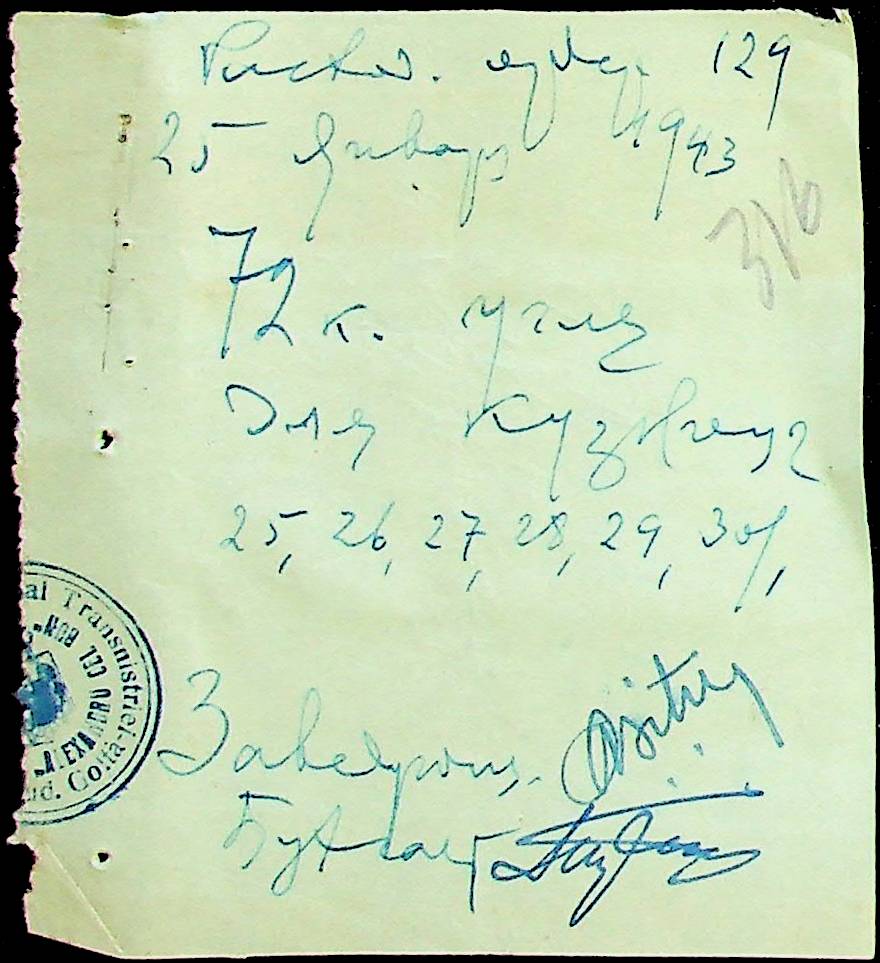 129
25 Января 1943
316
72 к. угля
Для Кузницы
25, 26, 27, 28, 29, 30/,
Transnistriei
"ALEXANDRU CEL BUN"
Jud. Golta
Заведующ.
Бухгалт